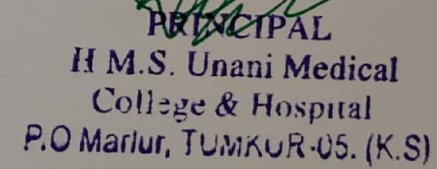 PRINCIPAL
H M.S. Unani Medical
College & Hospital
P.O Marlur, TUMKUR-05. (K.S)